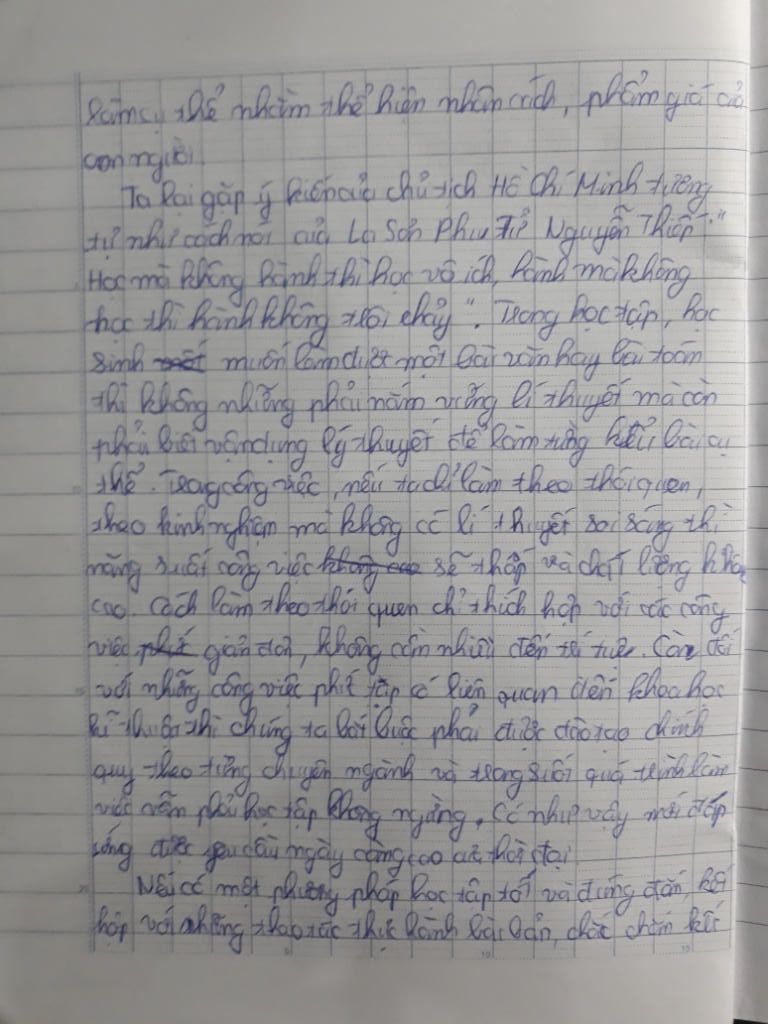 làm cụ thể nhằm thể hiện nhân cách, phẩm giá của
con người.
Ta lại gặp ý kiến của chủ tịch Hồ Chí Minh tương
tự như cách nói của La Sơn Phu Tử Nguyễn Thiếp: "
Học mà không hành thì học vô ích, hành mà không
học thì hành không trôi chảy". Trong học tập, học
sinh muốn làm được một bài văn hay bài toán
thì không những phải nắm vững lí thuyết mà còn
phải biết vận dụng lý thuyết để làm từng kiểu bài cụ
thể. Trong công việc, nếu ta chỉ làm theo thói quen,
theo kinh nghiệm mà không có lí thuyết soi sáng thì
năng suất công việc không cao sẽ thấp và chất lượng khó
cao. Cách làm theo thói quen chỉ thích hợp với các công
việc giản đơn, không cần nhiều đến trí tuệ. Còn đối
với những công việc phức tạp có liên quan đến khoa học
kĩ thuật thì chúng ta bắt buộc phải được đào tạo chính
quy theo từng chuyên ngành và trong suốt quá trình làm
việc vẫn phải học tập không ngừng. Có như vậy mới đáp
ứng được yêu cầu ngày càng cao của thời đại.
Nếu có một phương pháp học tập tốt và đúng đắn, kết
hợp với những thao tác thực hành bài bản, chắc chắn kết